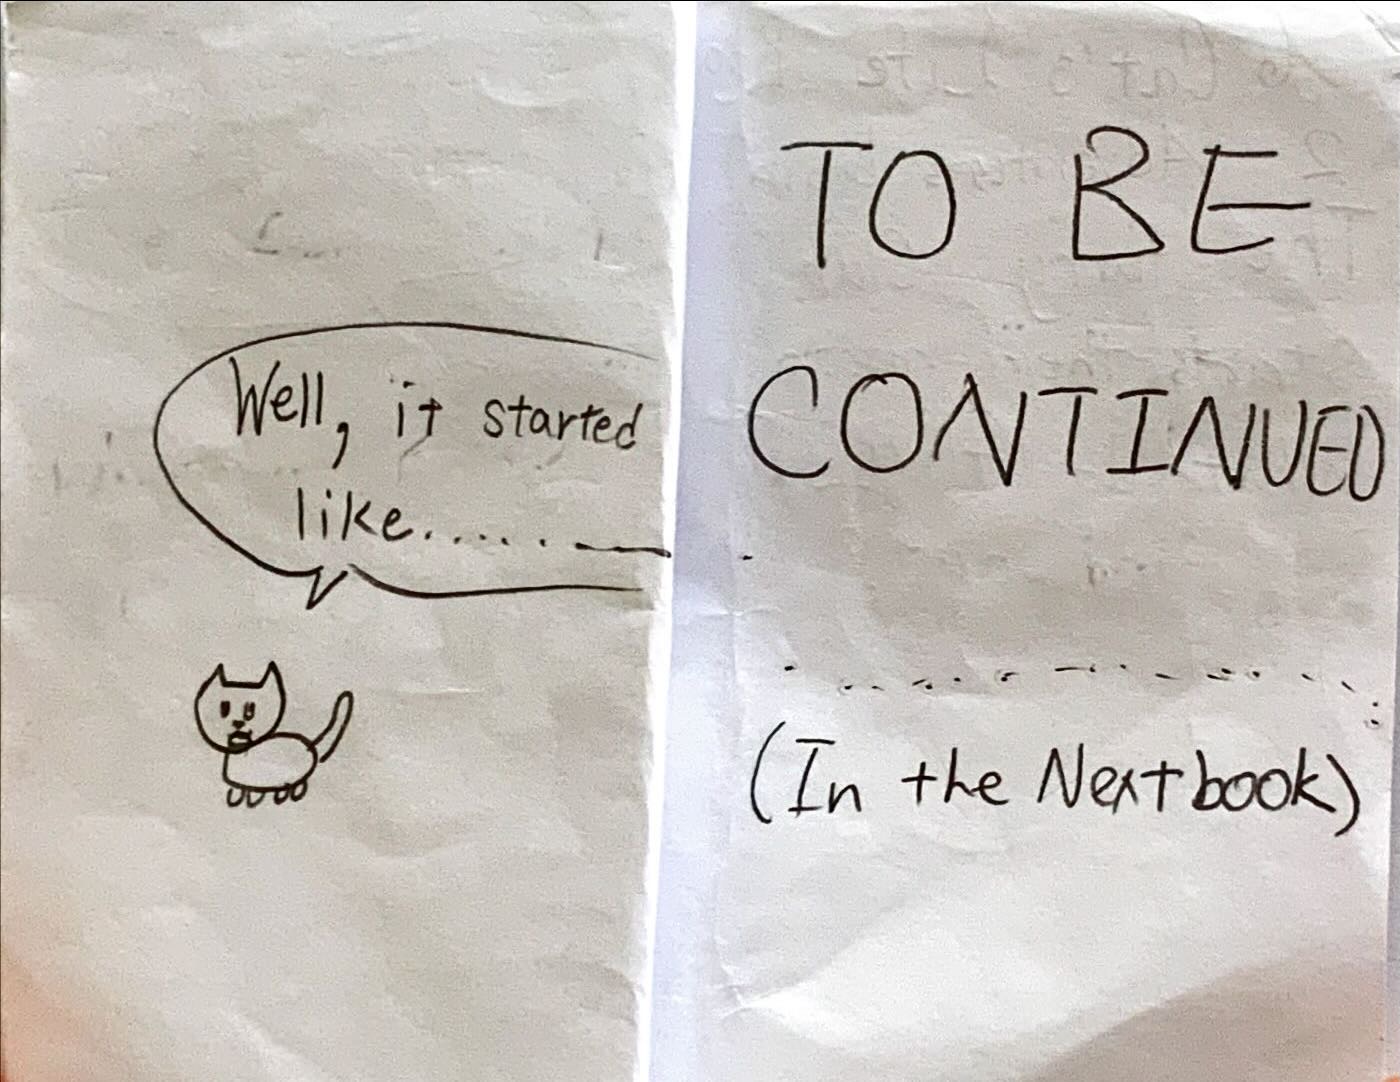 Well, it started
like......
TO BE
CONTINUED
(In the Next book)